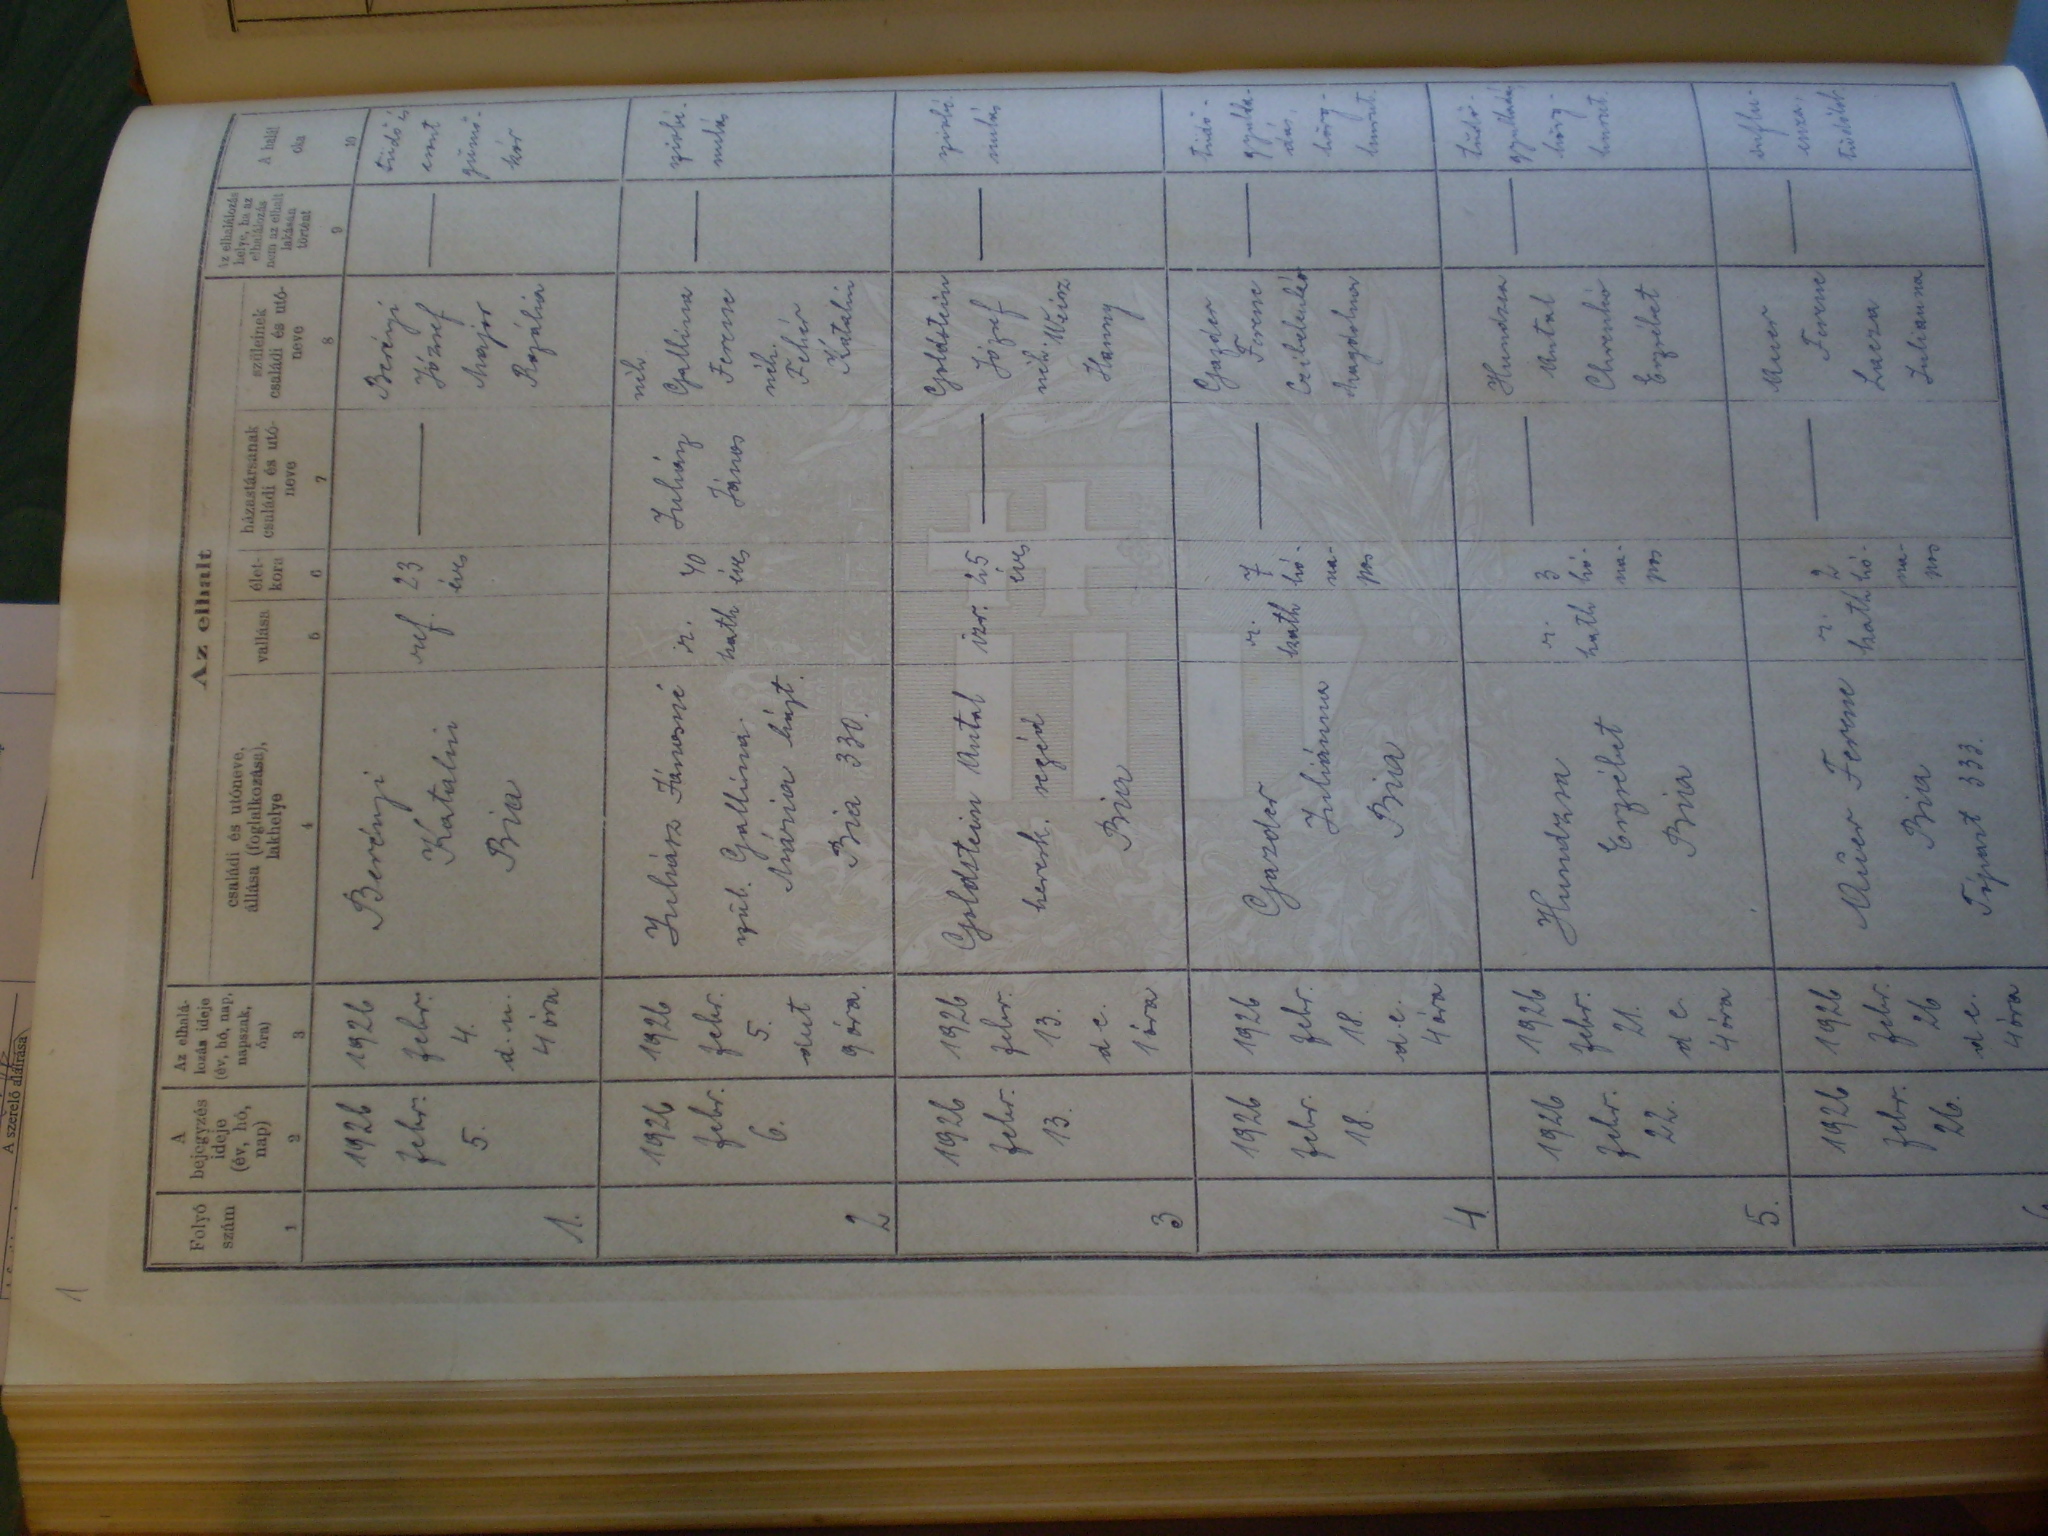 1
Az elhalt
Folyó
szám
A
bejegyzés
ideje
(év, hó,
nap)
Az elhalá-
lozás ideje
(év, hó, nap,
napszak,
óra)
családi és utóneve,
állása (foglalkozása),
lakhelye
vallása
élet-
kora
házastársának
családi és utó-
neve
szüleinek
családi és utó-
neve
Az elhalálozás
helye, ha az
elhalálozás
nem az elhalt
lakásán
történt
A halál
oka
1
2
3
4
5
6
7
8
9
10
1.
1926
febr.
5.
1926
febr.
4.
d.u.
4 óra
Berényi
Katalin
Bia
ref.
23
éves
Berényi
József
Major
Rozália
tüdő és
gümő-
kór
2
1926
febr.
6.
1926
febr.
5.
delut
9 óra.
Juhász Jánosné
szül. Gallina
Mária házt.
Bia 330.
r.
kath
40
éves
Juhász
János
néh.
Gallina
Ferenc
néh.
Fehér
Katalin
szívbé-
nulás
3
1926
febr.
13.
1926
febr.
13.
d.e.
1 óra
Goldstein Antal
keresk. segéd
Bia
izr.
25
éves
Goldstein
József
néh. Weisz
Hanny
szívbé-
nulás
4
1926
febr.
18.
1926
febr.
18.
d.e.
4 óra
Gazder
Juliánna
Bia
r.
kath
7
hó-
na-
pos
Gazder
Ferenc
Magdolna
tüdő-
gyulla-
dás,
hörg-
hurut.
5.
1926
febr.
22.
1926
febr.
21.
d e.
4 óra
Hundzsa
Erzsébet
Bia
r.
kath
3
hó-
na-
pos
Hundzsa
Antal
Chrenkó
Erzsébet
tüdő-
gyulladás
hörg-
hurut.
1926
febr.
26.
1926
febr.
26
d.e.
4 óra
Auer Ferenc
Bia
333.
r.
kath
2
hó-
na-
pos
Auer
Ferenc
Lacza
Juliana
influ-
enza,
A szerelő aláírása